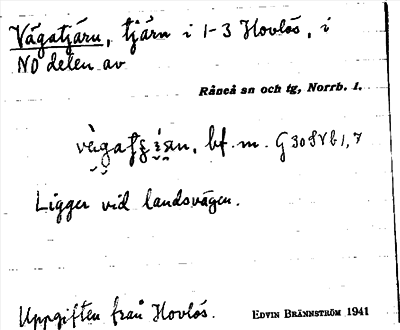 Vägatjärn, tjärn i 1-3 Hovlös, i
NO delen av
Råneå sn och tg, Norrb. l.
bf. m. G 30 S V b 1, 7
Ligger vid landsvägen.
Uppgiften från Hovlös. EDVIN BRÄNNSTRÖM 1941